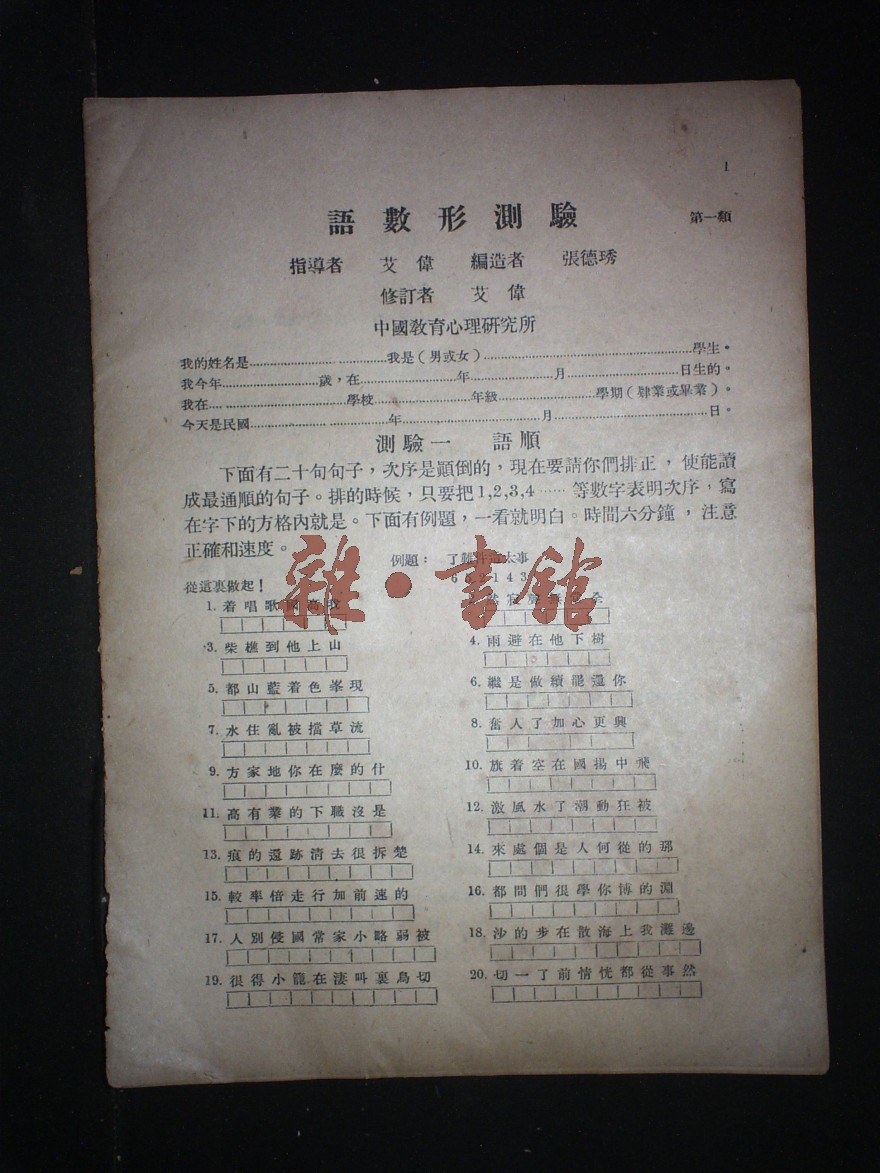 1
語數形測驗 第一類
指導者 艾偉 編造者 張德琇
修訂者 艾偉
中國教育心理研究所
我的姓名是……………………我是(男或女)……………………學生。
我今年……………歲,在……………年……………月……………日生的。
我在……………學校……………年級……………學期(肄業或畢業)。
今天是民國……………年……………月……………日。
測驗一 語順
下面有二十句句子,次序是顛倒的,現在要請你們排正,使能讀
成最通順的句子。排的時候,只要把1,2,3,4……等數字表明次序,寫
在字下的方格內就是。下面有例題,一看就明白。時間六分鐘,注意
正確和速度。
例題: 了難件大事
6 5 2 1 4 3
從這裏做起!
1. 着唱歌國高
3. 柴樵到他上山
4. 雨避在他下樹
5. 都山藍着色峯現
6. 繼是做續罷還你
7. 水住亂被擋草流
8. 奮人了加心更興
9. 方家地你在麼的什
10. 旗着空在國揚中飛
11. 高有業的下職沒是
12. 激風水了潮動狂被
13. 痕的還跡清去很拆楚
14. 來處個是人何從的那
15. 較率倍走行加前速的
16. 都問們很學你博的淵
17. 人別侵國常家小略弱被
18. 沙的步在散海上我灘邊
19. 很得小籠在淒叫裏鳥切
20. 切一了前情恍都從事然
雜·書館